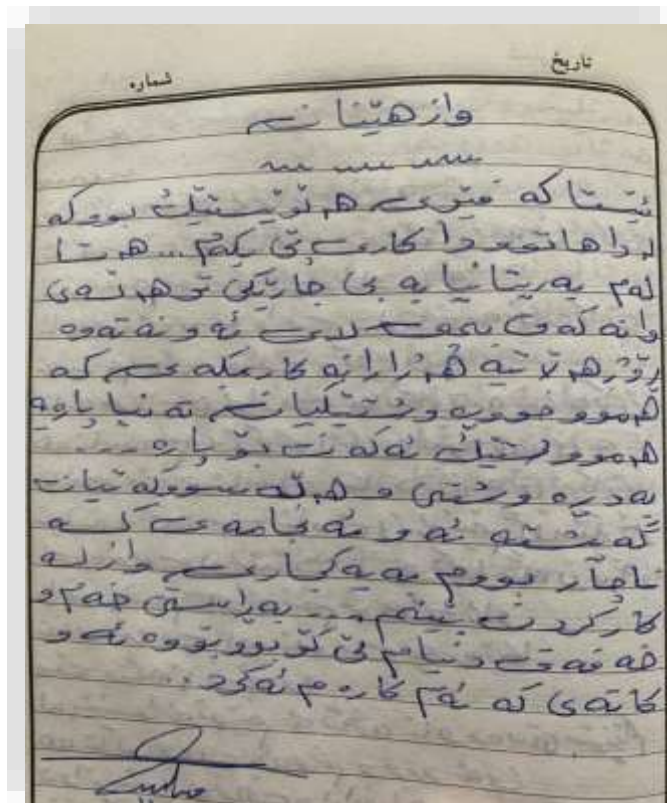 تاریخ
شماره
وازهێنان
ئێستا که فێری هەڵوێستێك بووم که
لە داهاتوودا کاری پێ بکەم... هەتا
لەم بەریتانیایە بێ جارێکی تر هەڵەی
وا نەکەم لای ئەو نەتەوە
ڕۆژهەڵاتیە هەژارانە کار بکەی که
هەموو خوویە وشتێکیان نە دنیا پارەیە
هەموو شتێك ئەکەن بۆ پارە ...
بەدڕە وشتی و هەڵسوکەتیان
گەیشتە ئەو ئەنجامەی که
ناچار بووم بە یەکجاری واز له
کارکردن بێنم... بەڕاستی خەم و
خەفەتی دنیام لێ کۆ بووبۆوە ئەو
کاتەی که ئەم کارەم ئەکرد..